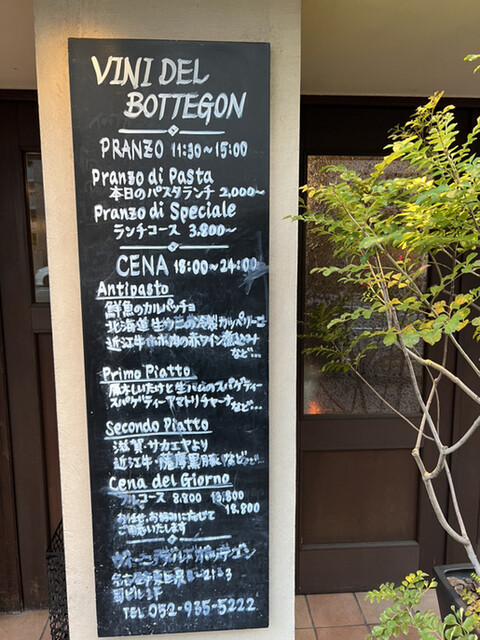 VINI DEL
BOTTEGON
PRANZO 11:30~15:00
Pranzo di Pasta
本日のパスタランチ 2,000~
Pranzo di Speciale
ランチコース 3.800~
CENA 18:00~24:00
Antipasto
鮮魚のカルパッチョ
北海道生ウニの冷製カッペリーニ
近江牛ホホ肉の赤ワイン煮込み
など...
Primo Piatto
しいたけと生ハムのスパゲティー
スパゲティーアマトリチャーナ など...
Secondo Piatto
滋賀・サカエヤより
近江牛・薩摩黒豚 など...
Cena del Giorno
フルコース 8.800 13,800
18,800
お任せ、お好みに応じて
ご用意いたします
ヴィーニデルボッテゴン
TEL 052-935-5222